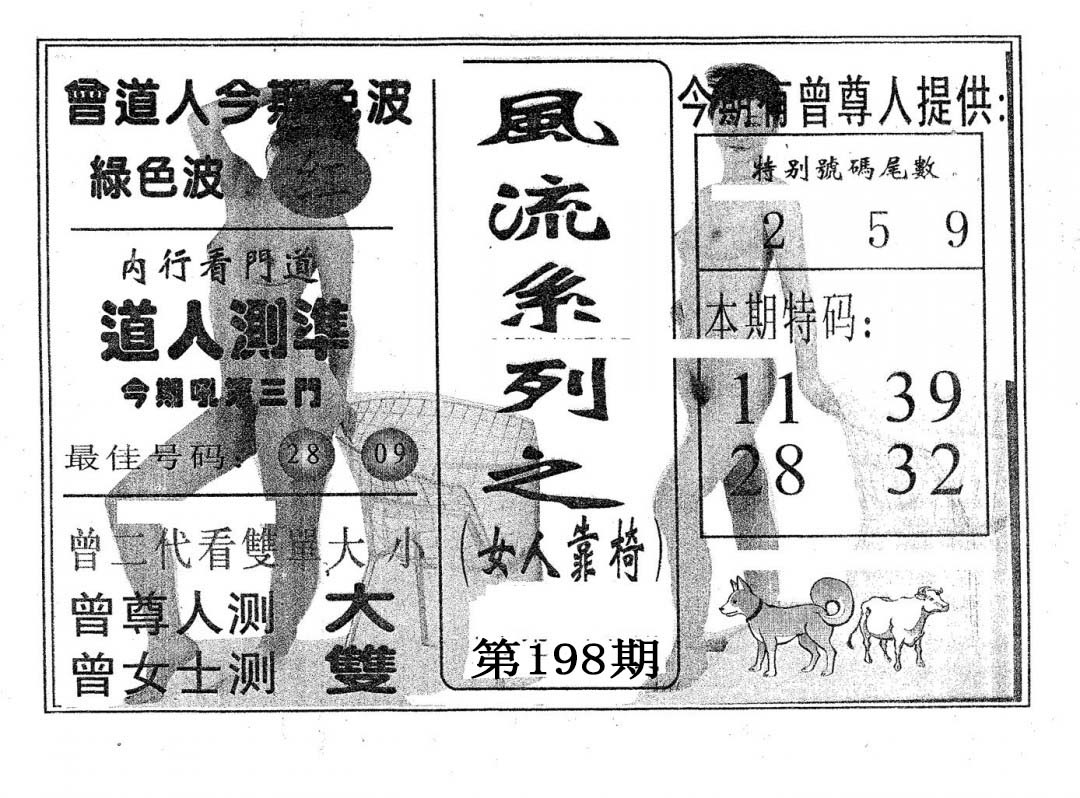 曾道人今期色波
綠色波
红
内行看門道
道人測準
今期吼實三門
最佳号码: 28 09
曾二代看雙單大小
曾尊人测 大
曾女士测 雙
風流系列之
(女人靠椅)
第198期
今期有曾尊人提供:
特别號碼尾數
2 5 9
本期特码:
11 39
28 32